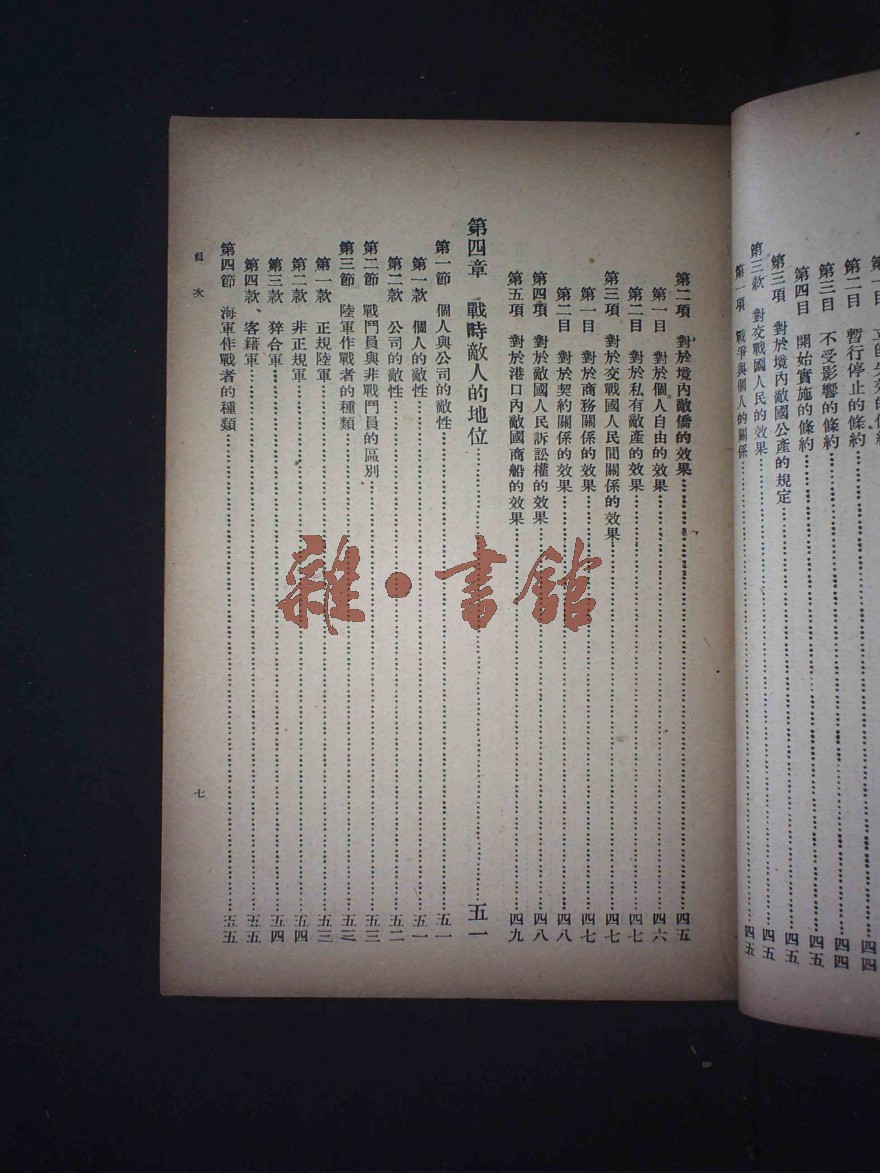 立即失效的條約……四四
第二目 暫行停止的條約……四四
第三目 不受影響的條約……四五
第四目 開始實施的條約……四五
第三項 對於境內敵國公產的規定……四五
第三款 對交戰國人民的效果……四五
第一項 戰爭與個人的關係……四五
第二項 對於境內敵僑的效果……四五
第一目 對於個人自由的效果……四六
第二目 對於私有敵產的效果……四七
第三項 對於交戰國人民間關係的效果……四七
第一目 對於商務關係的效果……四七
第二目 對於契約關係的效果……四八
第四項 對於敵國人民訴訟權的效果……四八
第五項 對於港口內敵國商船的效果……四九
第四章 戰時敵人的地位……五一
第一節 個人與公司的敵性……五一
第一款 個人的敵性……五一
第二款 公司的敵性……五二
第二節 戰鬥員與非戰鬥員的區別……五三
第三節 陸軍作戰者的種類……五三
第一款 正規陸軍……五三
第二款 非正規軍……五四
第三款 猝合軍……五四
第四款 客籍軍……五五
第四節 海軍作戰者的種類……五五
目次
七
雜·書館